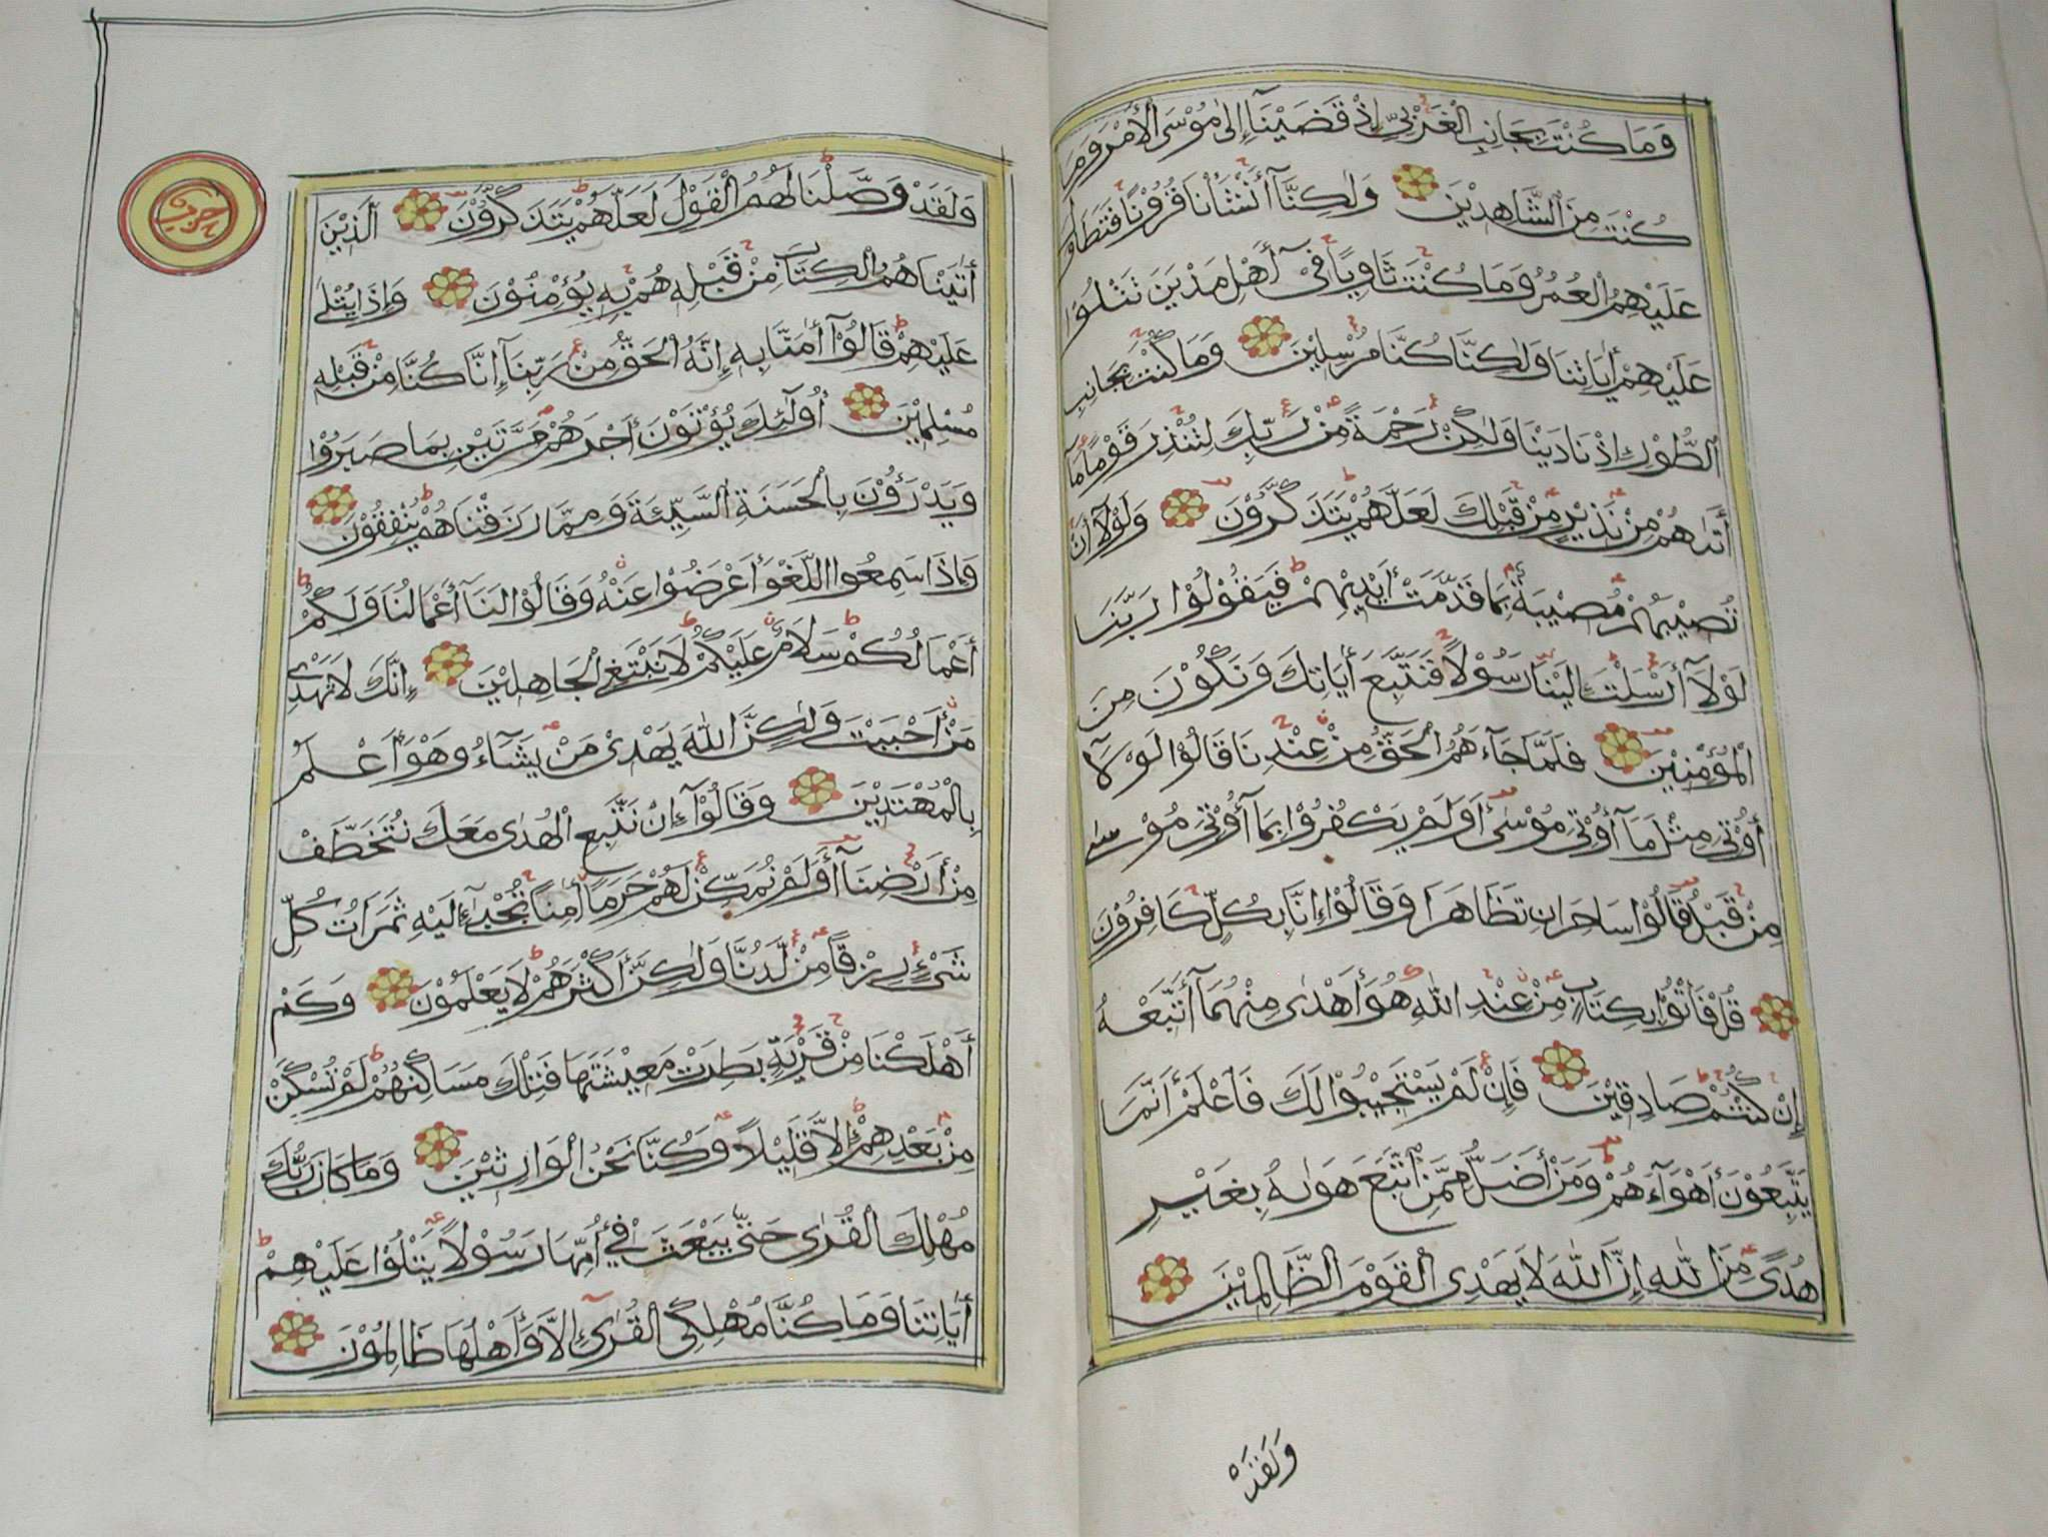 وَمَا كُنْتَ بِجَانِبِ الْغَرْبِيِّ إِذْ قَضَيْنَا إِلىٰ مُوْسَى الْأَمْرَ وَمَا
كُنْتَ مِنَ الشَّاهِدِيْنَ وَلٰكِنَّآ أَنْشَأْنَا قُرُوْنًا فَتَطَاوَلَ
عَلَيْهِمُ الْعُمُرُ وَمَا كُنْتَ ثَاوِيًا فِيْ أَهْلِ مَدْيَنَ تَتْلُوْا
عَلَيْهِمْ أٰيَاتِنَا وَلٰكِنَّا كُنَّا مُرْسِلِيْنَ وَمَا كُنْتَ بِجَانِبِ
الطُّوْرِ إِذْ نَادَيْنَا وَلٰكِنْ رَحْمَةً مِنْ رَبِّكَ لِتُنْذِرَ قَوْمًا مَا
أَتٰىهُمْ مِنْ نَذِيْرٍ مِنْ قَبْلِكَ لَعَلَّهُمْ يَتَذَكَّرُوْنَ وَلَوْلَآ أَنْ
تُصِيْبَهُمْ مُصِيْبَةٌ بِمَا قَدَّمَتْ أَيْدِيْهِمْ فَيَقُوْلُوْا رَبَّنَا
لَوْلَآ أَرْسَلْتَ إِلَيْنَا رَسُوْلًا فَنَتَّبِعَ أٰيَاتِكَ وَنَكُوْنَ مِنَ
الْمُؤْمِنِيْنَ فَلَمَّا جَآءَهُمُ الْحَقُّ مِنْ عِنْدِنَا قَالُوْا لَوْلَآ
أُوْتِيَ مِثْلَ مَآ أُوْتِيَ مُوْسٰى أَوَلَمْ يَكْفُرُوْا بِمَا أُوْتِيَ مُوْسٰى
مِنْ قَبْلُ قَالُوْا سَاحِرَانِ تَظَاهَرَا وَقَالُوْا إِنَّا بِكُلٍّ كَافِرُوْنَ
قُلْ فَأْتُوْا بِكِتَابٍ مِنْ عِنْدِ اللّٰهِ هُوَ أَهْدٰى مِنْهُمَآ أَتَّبِعْهُ
إِنْ كُنْتُمْ صَادِقِيْنَ فَإِنْ لَمْ يَسْتَجِيْبُوْا لَكَ فَاعْلَمْ أَنَّمَا
يَتَّبِعُوْنَ أَهْوَآءَهُمْ وَمَنْ أَضَلُّ مِمَّنِ اتَّبَعَ هَوٰىهُ بِغَيْرِ
هُدًى مِنَ اللّٰهِ إِنَّ اللّٰهَ لَا يَهْدِى الْقَوْمَ الظَّالِمِيْنَ
وَلَقَدْ
وَلَقَدْ وَصَّلْنَا لَهُمُ الْقَوْلَ لَعَلَّهُمْ يَتَذَكَّرُوْنَ الَّذِيْنَ
أٰتَيْنَاهُمُ الْكِتَابَ مِنْ قَبْلِهِ هُمْ بِهِ يُؤْمِنُوْنَ وَإِذَا يُتْلٰى
عَلَيْهِمْ قَالُوْآ أٰمَنَّا بِهِ إِنَّهُ الْحَقُّ مِنْ رَبِّنَآ إِنَّا كُنَّا مِنْ قَبْلِهِ
مُسْلِمِيْنَ أُولٰٓئِكَ يُؤْتَوْنَ أَجْرَهُمْ مَرَّتَيْنِ بِمَا صَبَرُوْا
وَيَدْرَؤُنَ بِالْحَسَنَةِ السَّيِّئَةَ وَمِمَّا رَزَقْنَاهُمْ يُنْفِقُوْنَ
وَإِذَا سَمِعُوا اللَّغْوَ أَعْرَضُوْا عَنْهُ وَقَالُوْا لَنَآ أَعْمَالُنَا وَلَكُمْ
أَعْمَالُكُمْ سَلَامٌ عَلَيْكُمْ لَا نَبْتَغِى الْجَاهِلِيْنَ إِنَّكَ لَا تَهْدِى
مَنْ أَحْبَبْتَ وَلٰكِنَّ اللّٰهَ يَهْدِىْ مَنْ يَشَآءُ وَهْوَ أَعْلَمُ
بِالْمُهْتَدِيْنَ وَقَالُوْآ إِنْ نَتَّبِعِ الْهُدٰى مَعَكَ نُتَخَطَّفْ
مِنْ أَرْضِنَآ أَوَلَمْ نُمَكِّنْ لَهُمْ حَرَمًا أٰمِنًا يُجْبٰىٓ إِلَيْهِ ثَمَرَاتُ كُلِّ
شَيْءٍ رِزْقًا مِنْ لَدُنَّا وَلٰكِنَّ أَكْثَرَهُمْ لَا يَعْلَمُوْنَ وَكَمْ
أَهْلَكْنَا مِنْ قَرْيَةٍ بَطِرَتْ مَعِيْشَتَهَا فَتِلْكَ مَسَاكِنُهُمْ لَمْ تُسْكَنْ
مِنْ بَعْدِهِمْ إِلَّا قَلِيْلًا وَكُنَّا نَحْنُ الْوَارِثِيْنَ وَمَا كَانَ رَبُّكَ
مُهْلِكَ الْقُرٰى حَتّٰى يَبْعَثَ فِيْ أُمِّهَا رَسُوْلًا يَتْلُوْا عَلَيْهِمْ
أٰيَاتِنَا وَمَا كُنَّا مُهْلِكِى الْقُرٰىٓ إِلَّا وَأَهْلُهَا ظَالِمُوْنَ